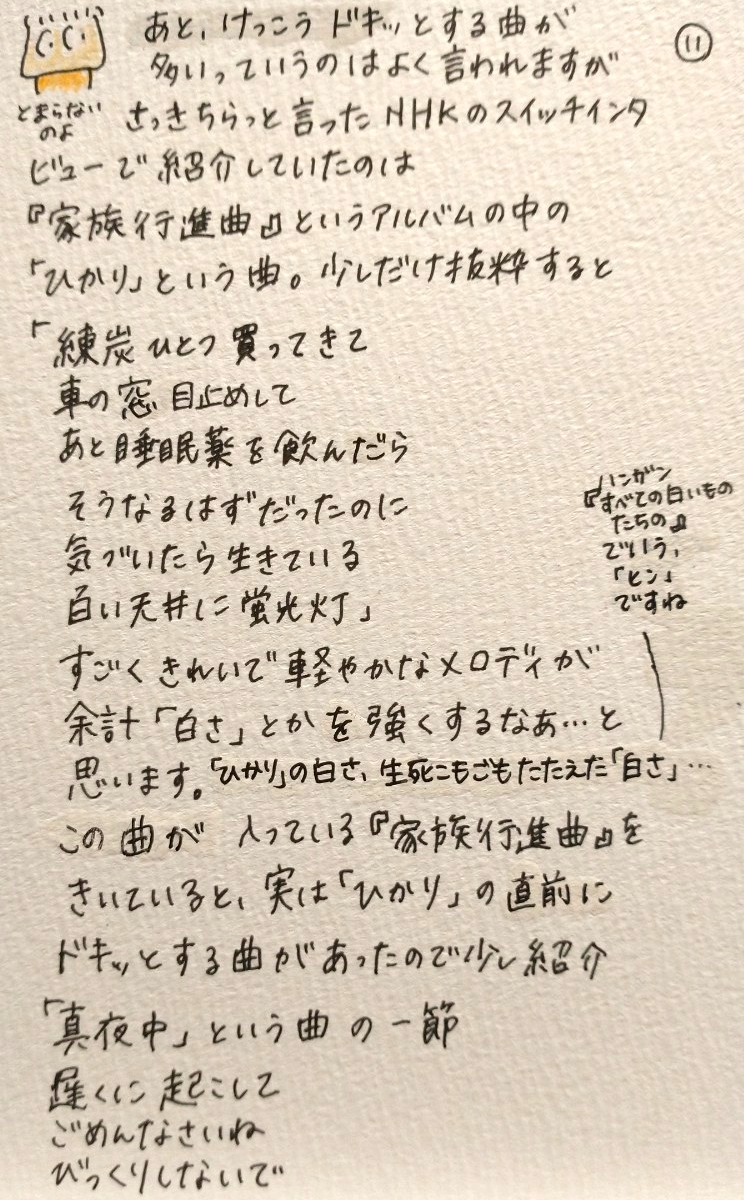 あと、けっこうドキッとする曲が
多いっていうのはよく言われますが
⑪
とまらない
のよ
さっきちらっと言ったNHKのスイッチインタ
ビューで紹介していたのは
『家族行進曲』というアルバムの中の
「ひかり」という曲。少しだけ抜粋すると
「練炭ひとつ買ってきて
車の窓目止めして
あと睡眠薬を飲んだら
そうなるはずだったのに
気づいたら生きている
白い天井に蛍光灯」
ハンガン
『すべての白いもの
たちの』
でいう、
「ヒン」
ですね
すごくきれいで軽やかなメロディが
余計「白さ」とかを強くするなあ…と
思います。「ひかり」の白さ、生死こもごもたたえた「白さ」…
この曲が入っている『家族行進曲』を
きいていると、実は「ひかり」の直前に
ドキッとする曲があったので少し紹介
「真夜中」という曲の一節
遅くに起こして
ごめんなさいね
びっくりしないで